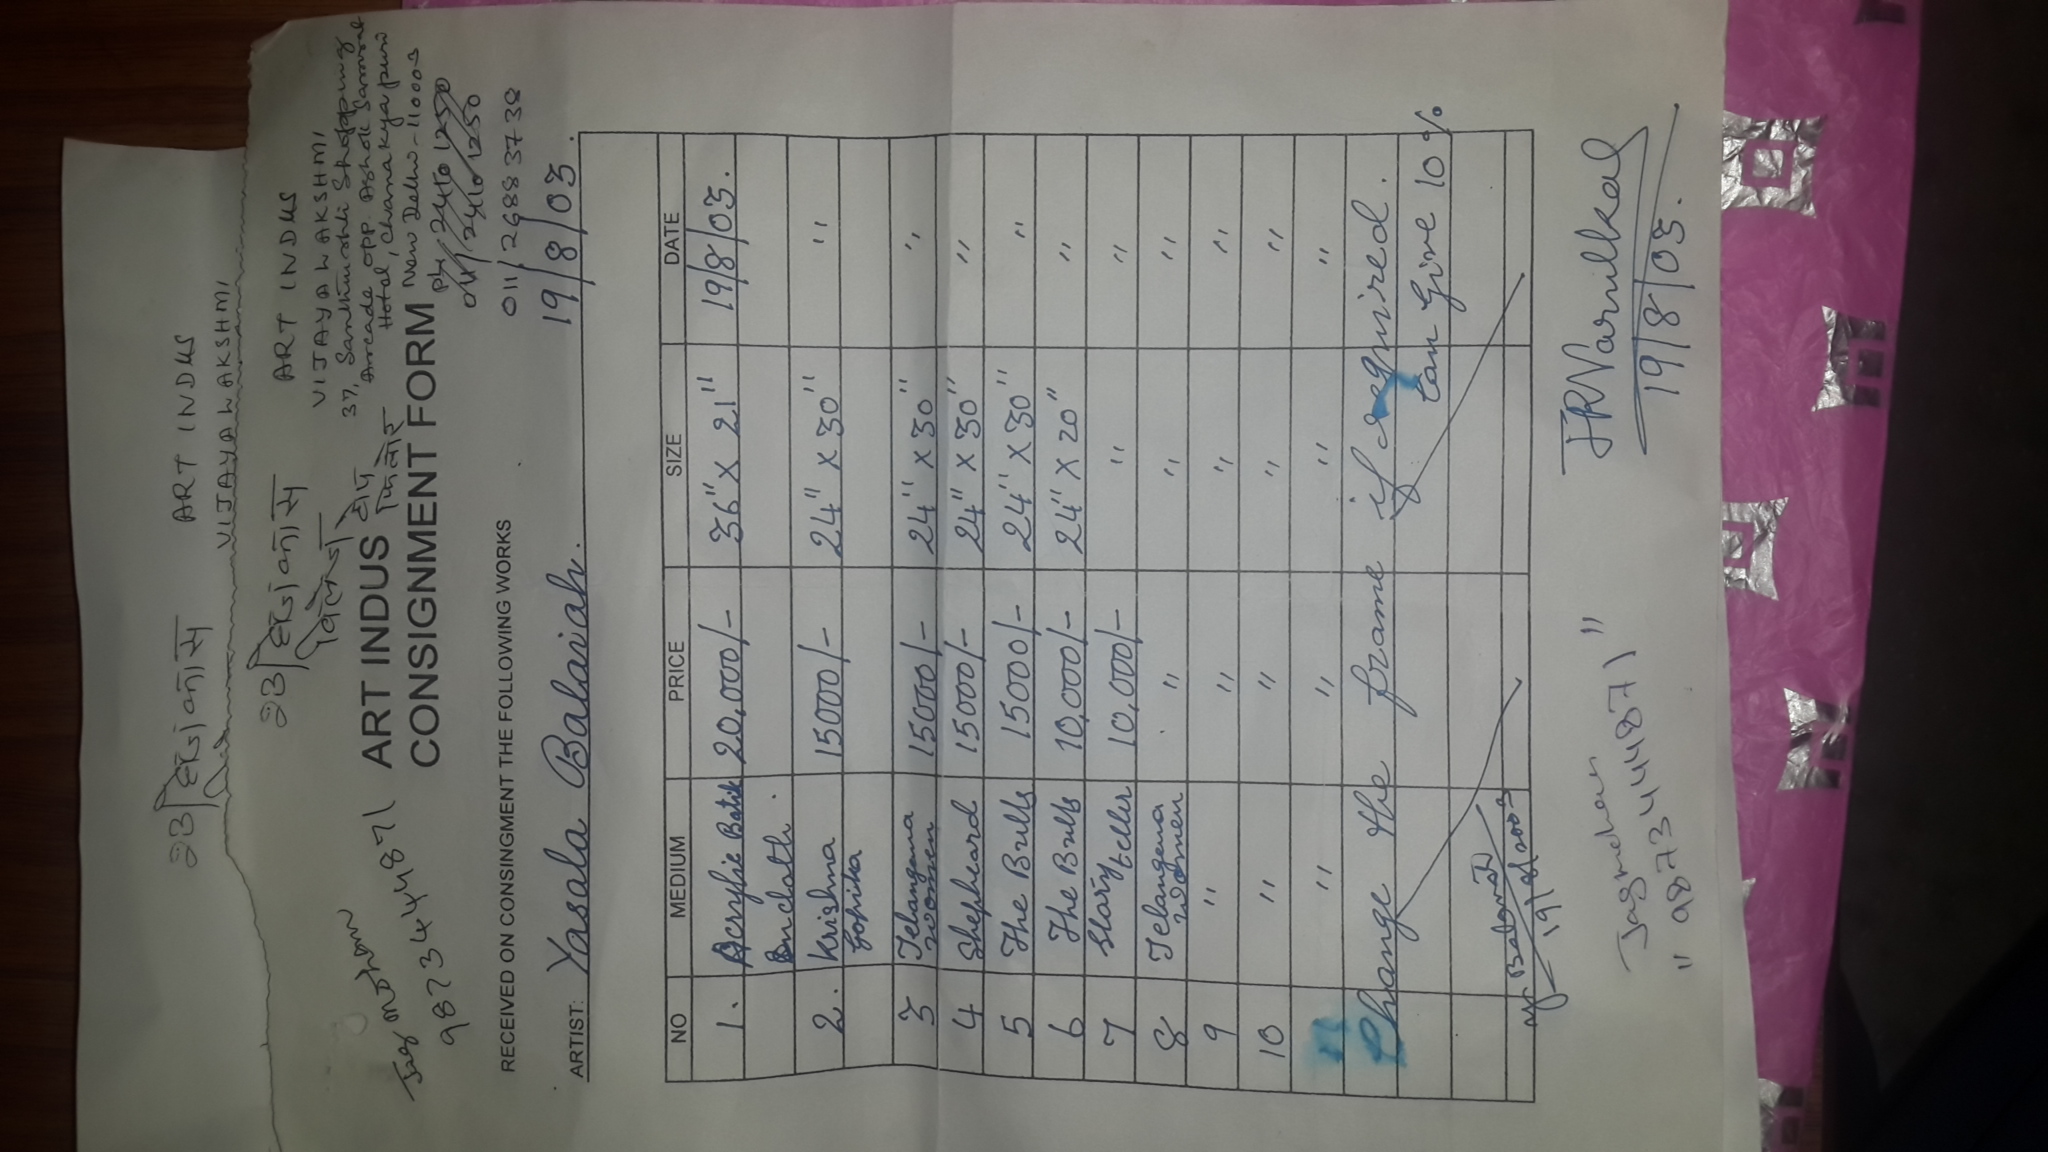 23/हौज कास
ART INDUS
VIJAYALAKSHMI
23/हौज कास
विलेज
टोप
फ्लोर
ART INDUS
VIJAYALAKSHMI
37, Santhushti Shopping
Arcade opp. Ashok Samrat
Hotel, Chanakyapuri
New Delhi-110003
Ph. 2410 1250
011/2410 1250
011/26883738
Jag moham
9873444871
ART INDUS
CONSIGNMENT FORM
RECEIVED ON CONSINGMENT THE FOLLOWING WORKS
19/8/03.
ARTIST: Yasala Balaiah.
NO MEDIUM PRICE SIZE DATE
1. Acrylic Batik 20,000/- 36" X 21" 19/8/03.
On cloth.
2. Krishna 15000/- 24" X 30" "
Gopika
3 Telangana women 15000/- 24" X 30" "
4 Shepheard 15000/- 24" X 30" "
5 The Bulls 15000/- 24" X 30" "
6 The Bulls 10,000/- 24" X 20" "
7 Story teller 10,000/- " "
8 Telangana women " " "
9 " " " "
10 " " " "
11 " " " "
Change the frame if required.
Can Give 10%
Y. Balaiah
19/8/2003
Jagmohan
" 9873444871 "
19/8/03.